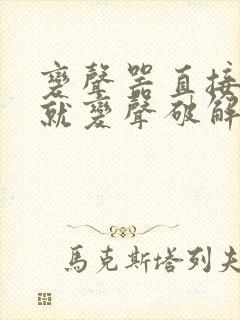 變聲器直接
就變聲破解
馬克斯塔列夫